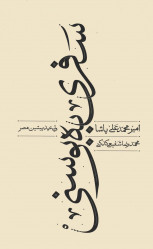 سفری به بوسنی
امیر محمد علی پاشا
ولیعهد پیشین مصر
محمدرضا شفیعی کدکنی